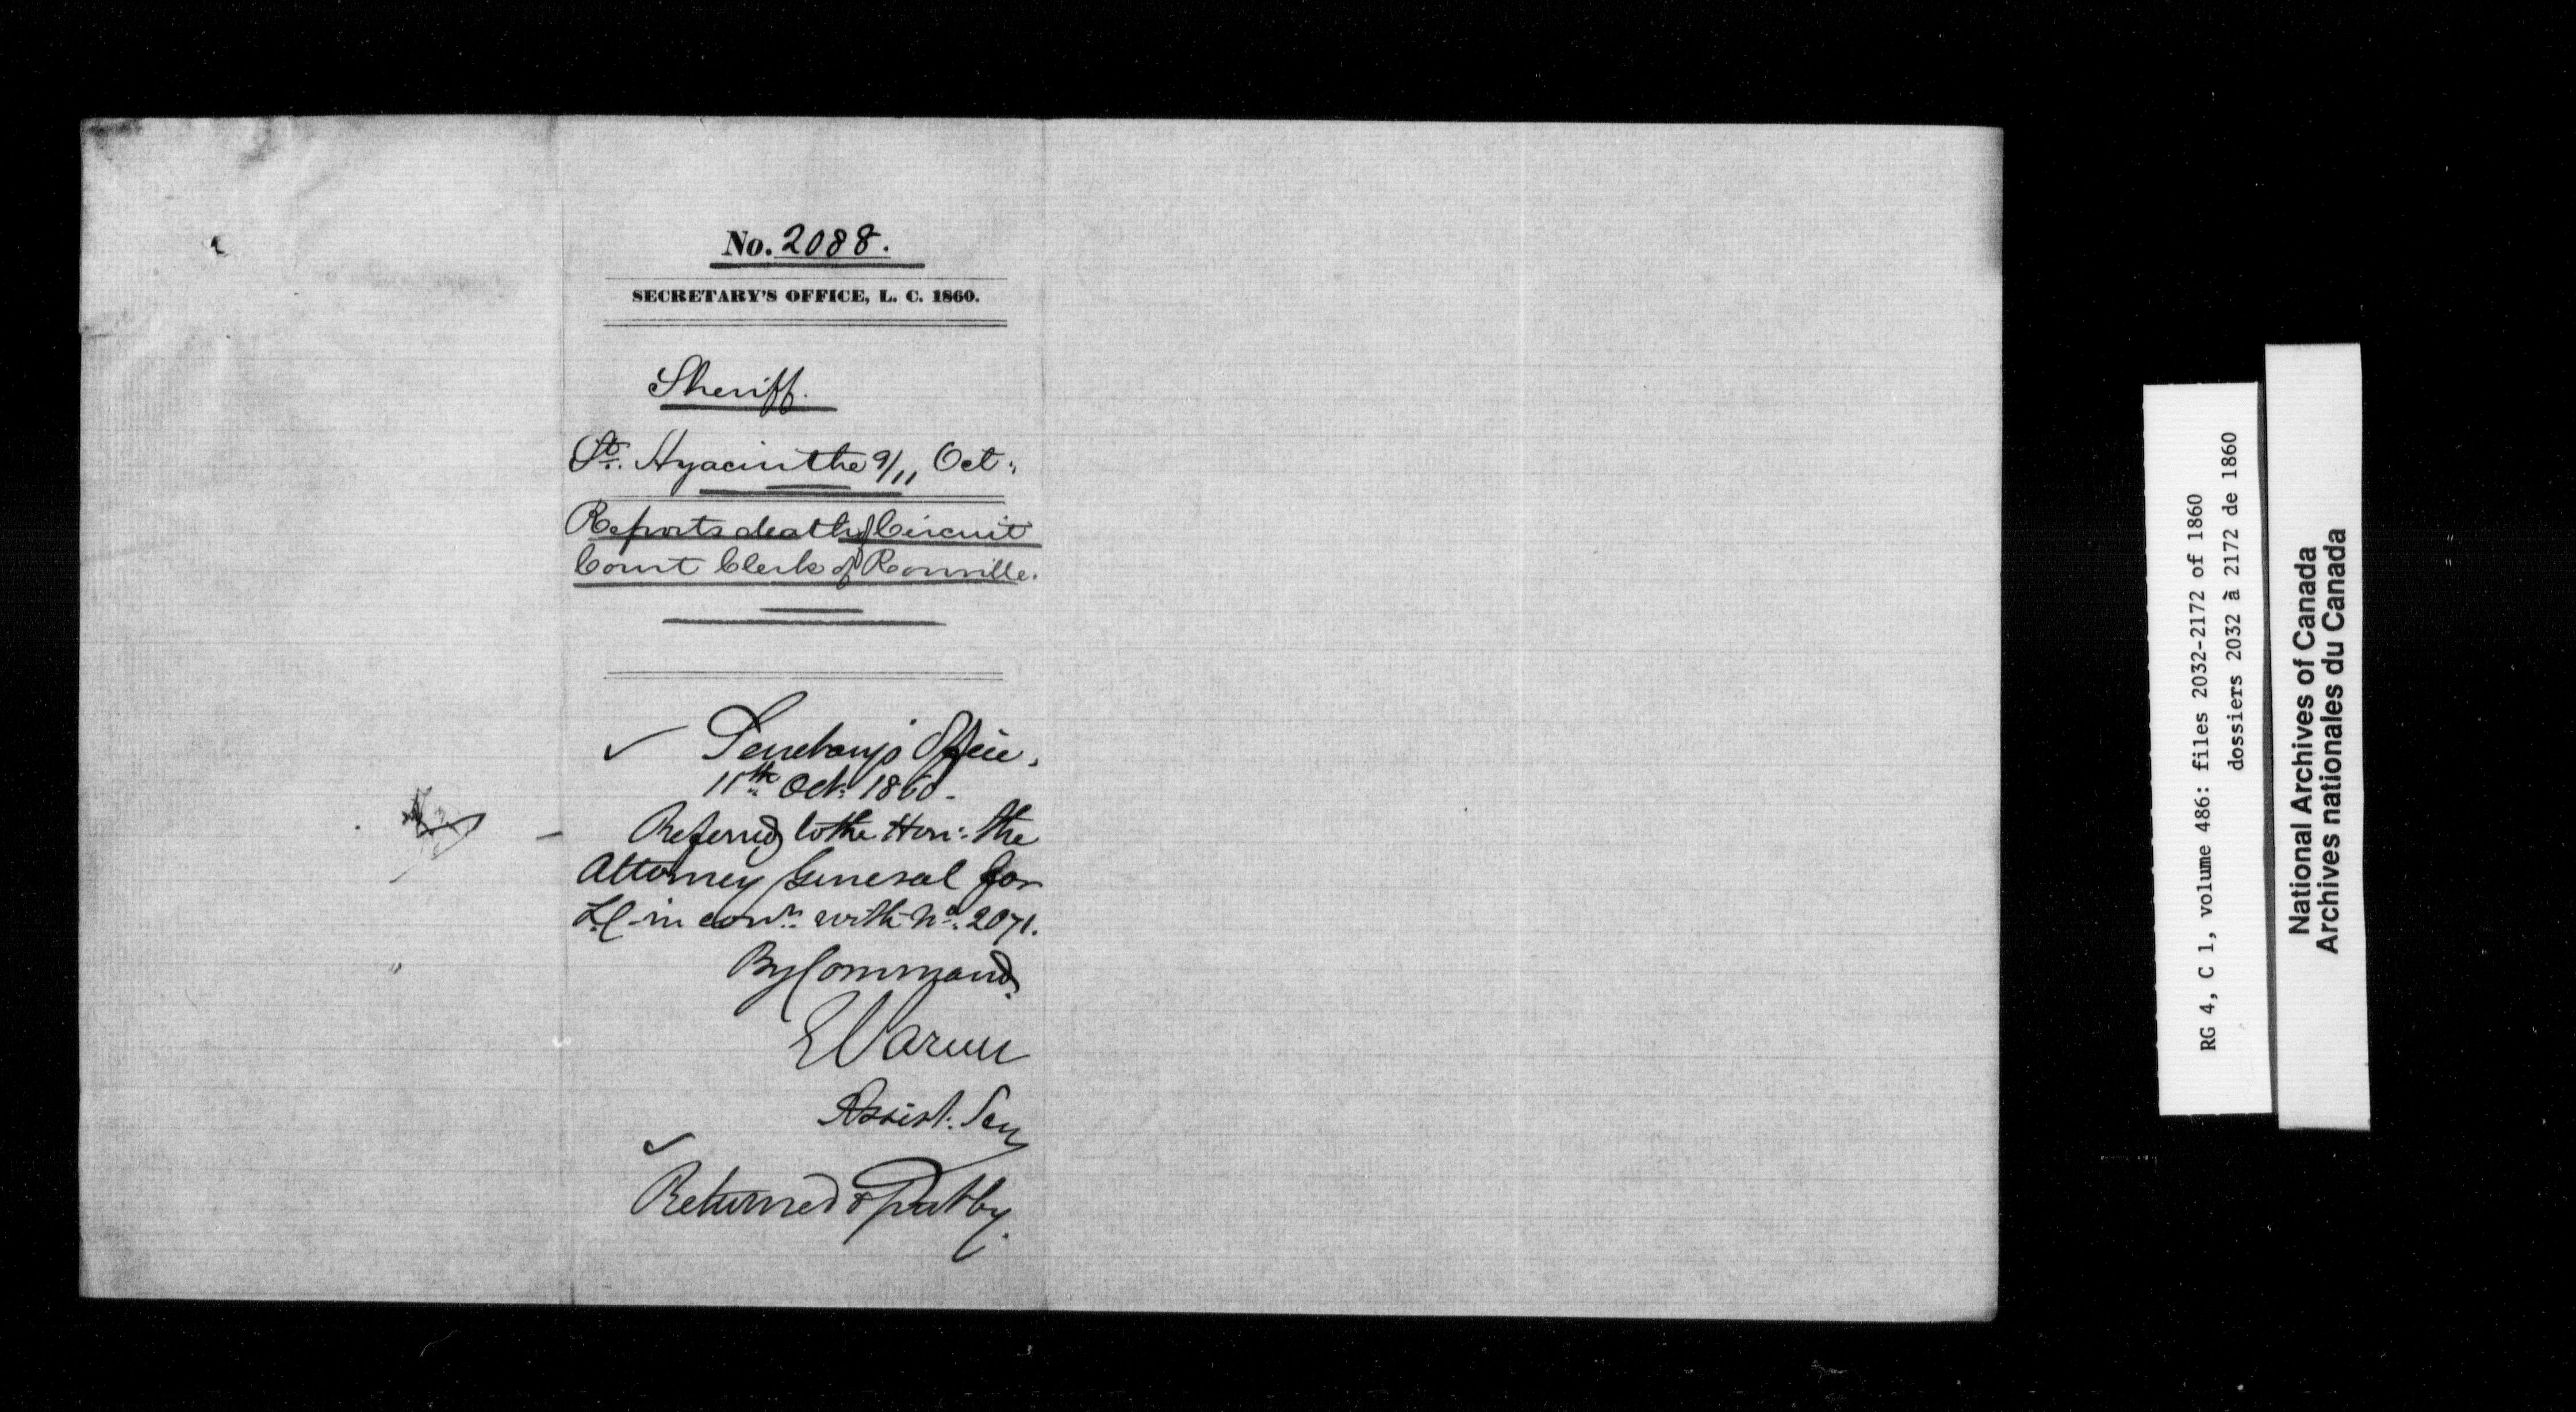 No. 2088.
SECRETARY'S OFFICE, L. C. 1860.
Sheriff.
St. Hyacinthe 9/11 Oct:
Reports death of Circuit
Court Clerk of Rouville.
Secretary's Office,
11th Oct. 1860-
Referred to the Hon: the
Attorney General for
L.C in conn. with No. 2071.
By Command.
E Parent
Assist. Secy
Returned & put by.
RG 4, C 1, volume 486: files 2032-2172 of 1860
dossiers 2032 à 2172 de 1860
National Archives of Canada
Archives nationales du Canada